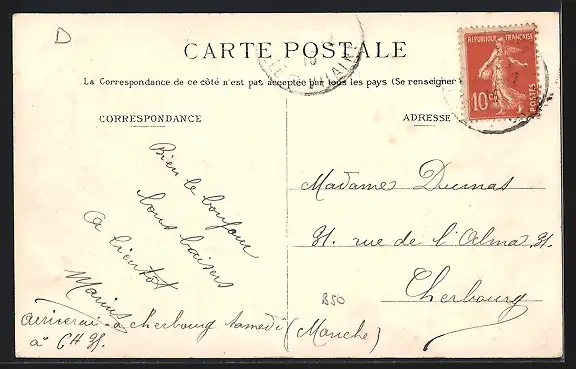 D
CARTE POSTALE
La Correspondance de ce côté n'est pas acceptée par tous les pays (Se renseigner
CORRESPONDANCE
ADRESSE
REPUBLIQUE FRANÇAISE
10c
POSTES
Bien le bonjour
bons baisers
a bientot
Marius
ariverai a cherbourg samedi
a 6H 31.
Madame Dumas
31. rue de l'Alma 31.
Cherbourg
(Manche)
850